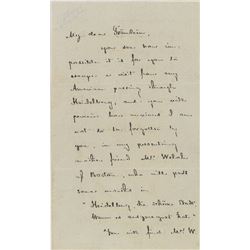 My dear Fräulein,
you see how im-
possible it is for you to
escape a visit from any
American passing through
Heidelberg, and you will
perceive how resigned I am
not to be forgotten by
you, in my presenting
another friend Mr. Welsh
of Boston, who will pass
some months in
"Heidelberg die schöne Stadt
Wenn es
"You will find Mr. W.